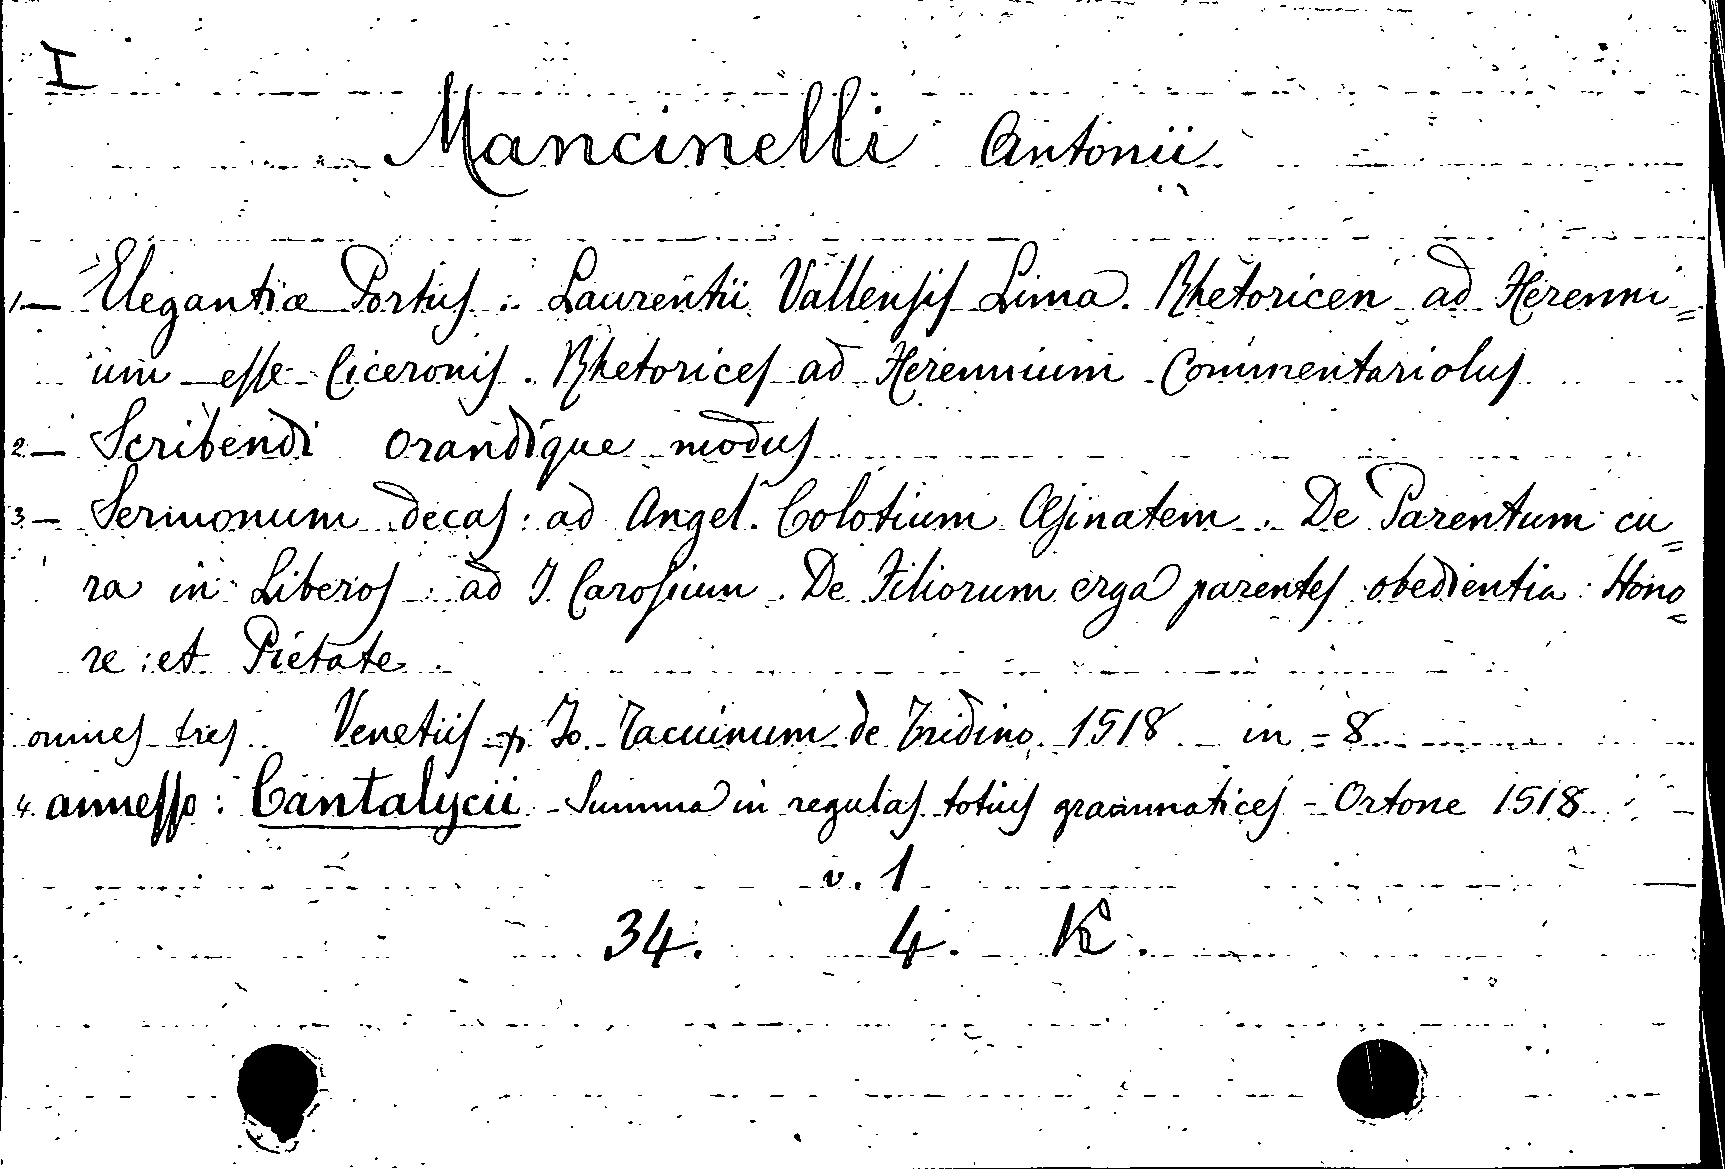 I
Mancinelli Antonii
1— Elegantiæ Portus : Laurentii Vallensis Lima. Rhetoricen ad Herenni=
um esse Ciceronis. Rhetorices ad Herennium Commentariolus
2— Scribendi orandique modus
3.— Sermonum decas: ad Angel. Colotium Æsinatem. De Parentum cu=
ra in Liberos : ad I Carosium. De Filiorum erga parentes obedientia: Hono=
re: et Pietate.
omnes tres Venetiis p Jo. Tacuinum de Tridino 1518 in-8
4. annesso: Cantalycii - Summa in regulas totius grammatices - Ortone 1518
v. 1
34. 4. K.